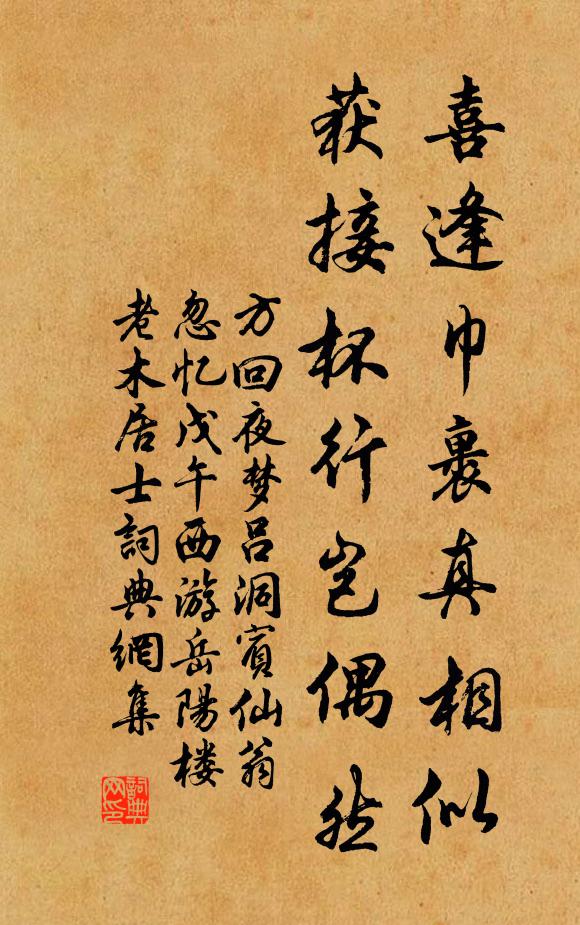 喜逢巾裹真相似
获接杯行岂偶然
方回夜梦吕洞宾仙翁
忽忆戊午西游岳陽楼
老木居士詞典網集
詞典网印